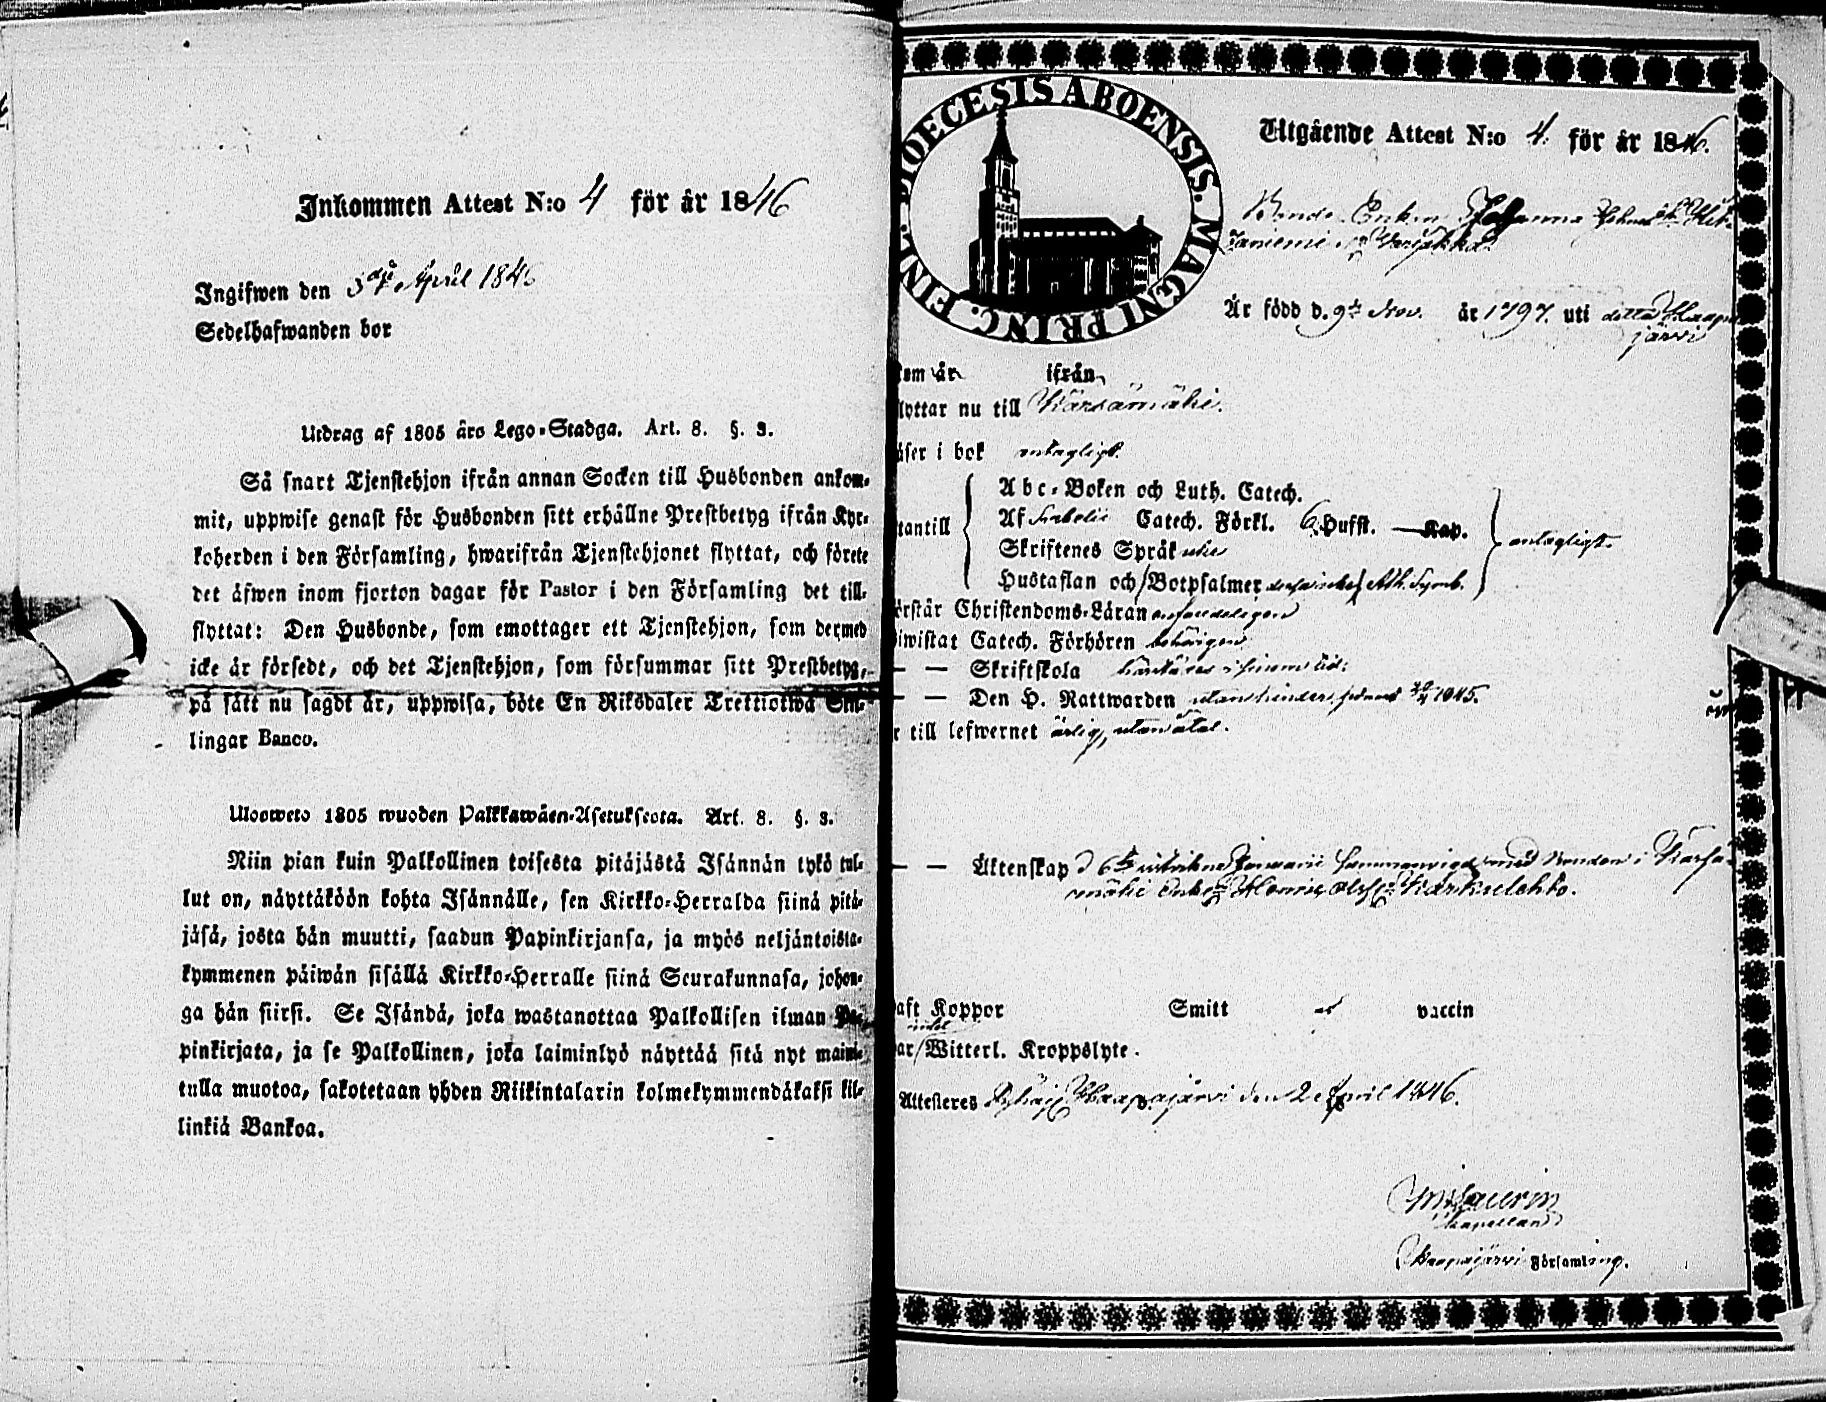 Inkommen Attest N:o 4 för år 1846
Ingifwen den 3dje April 1846
Sedelhafwanden bor
Utdrag af 1805 års Lego-Stadga. Art. 8. §. 3.
Så snart Tjenstehjon ifrån annan Socken till Husbonden ankom-
mit, uppwise genast för Husbonden sitt erhållne Prestbetyg ifrån Kyr-
koherden i den Församling, hwarifrån Tjenstehjonet flyttat, och förete
det äfwen inom fjorton dagar för Pastor i den Församling det till-
flyttat: Den Husbonde, som emottager ett Tjenstehjon, som dermed
icke är försedt, och det Tjenstehjon, som försummar sitt Prestbetyg,
på sätt nu sagdt är, uppwisa, böte En Riksdaler Trettiotwå Skil-
lingar Banco.
Ulosweto 1805 wuoden Palkkawäen-Asetuksesta. Art. 8. §. 3.
Niin pian kuin Palkollinen toisesta pitäjästä Isännän tykö tul-
lut on, näyttäköön kohta Isännälle, sen Kirkko-Herralda siinä pitä-
jäsä, josta hän muutti, saadun Papinkirjansa, ja myös neljäntoista-
kymmenen päiwän sisällä Kirkko-Herralle siinä Seurakunnasa, johon-
ga hän siirsi. Se Isändä, joka wastanottaa Palkollisen ilman Pa-
pinkirjata, ja se Palkollinen, joka laiminlyö näyttää sitä nyt maini-
tulla muotoa, sakotetaan yhden Riikintalarin kolmekymmendäkaksi kil-
linkiä Bankoa.
DIOECESIS ABOENSIS. MAGNI PRINC. FINL.
Utgående Attest N:o 4. för år 1846.
Bonde Enkan Johanna
Är född d. 9de Nov. år 1797. uti detta Haapa
järvi
som år ifrån
lyttar nu till Kärsämäki.
äser i bok antagligt.
tantill
Abc-Boken och Luth. Catech.
Af Svebelii Catech. Förkl. 6 Hufst. — Kap.
Skriftenes Språk
Hustaflan och Botpsalmer Ath. Symb.
antagligt.
örstår Christendoms-Läran
iwistat Catech. Förhören behörigen
— — Skriftskola
— — Den H. Nattwarden utan hinder, 1845.
r till lefwernet ärlig, utan åtal.
— — Äktenskap d 6te Januarii sammanvigd med Bonden i Kärsä-
mäki Enkel. Henric Olsson Kärkulehto.
aft Koppor Smitt vaccin
ar Witterl. Kroppslyte.
Attesteres Haapajärvi den 2 April 1846.
Kapellan
Haapajärvi Församling.